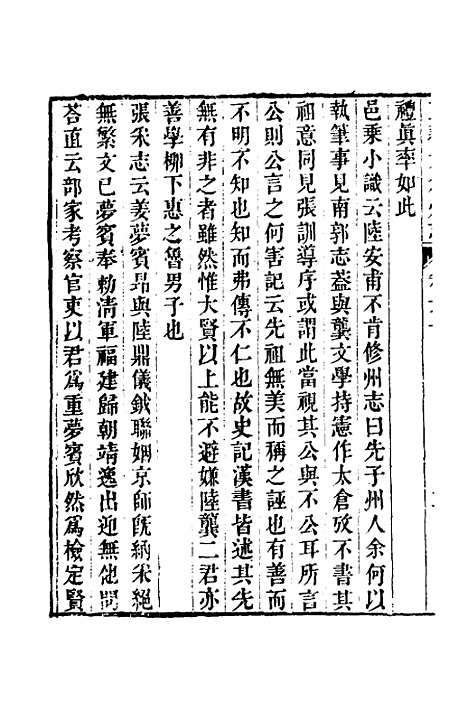 禮真率如此
邑乘小識云陸安甫不肯修州志曰先子州人余何以
執筆事見南郭志葢與龔文學持憲作太倉攷不書其
祖意同見張訓導序或謂此當視其公與不公耳所言
公則公言之何害記云先祖無美而稱之誣也有善而
不明不知也知而弗傳不仁也故史記漢書皆述其先
無有非之者雖然惟大賢以上能不避嫌陸龔二君亦
善學柳下惠之魯男子也
張采志云姜夢賓昂與陸鼎儀釴聯姻京師旣納釆絕
無繁文已夢賓奉勑清軍福建歸朝靖逸出迎無他問
荅直云部家考察官吏以君爲重夢賓欣然爲檢定賢